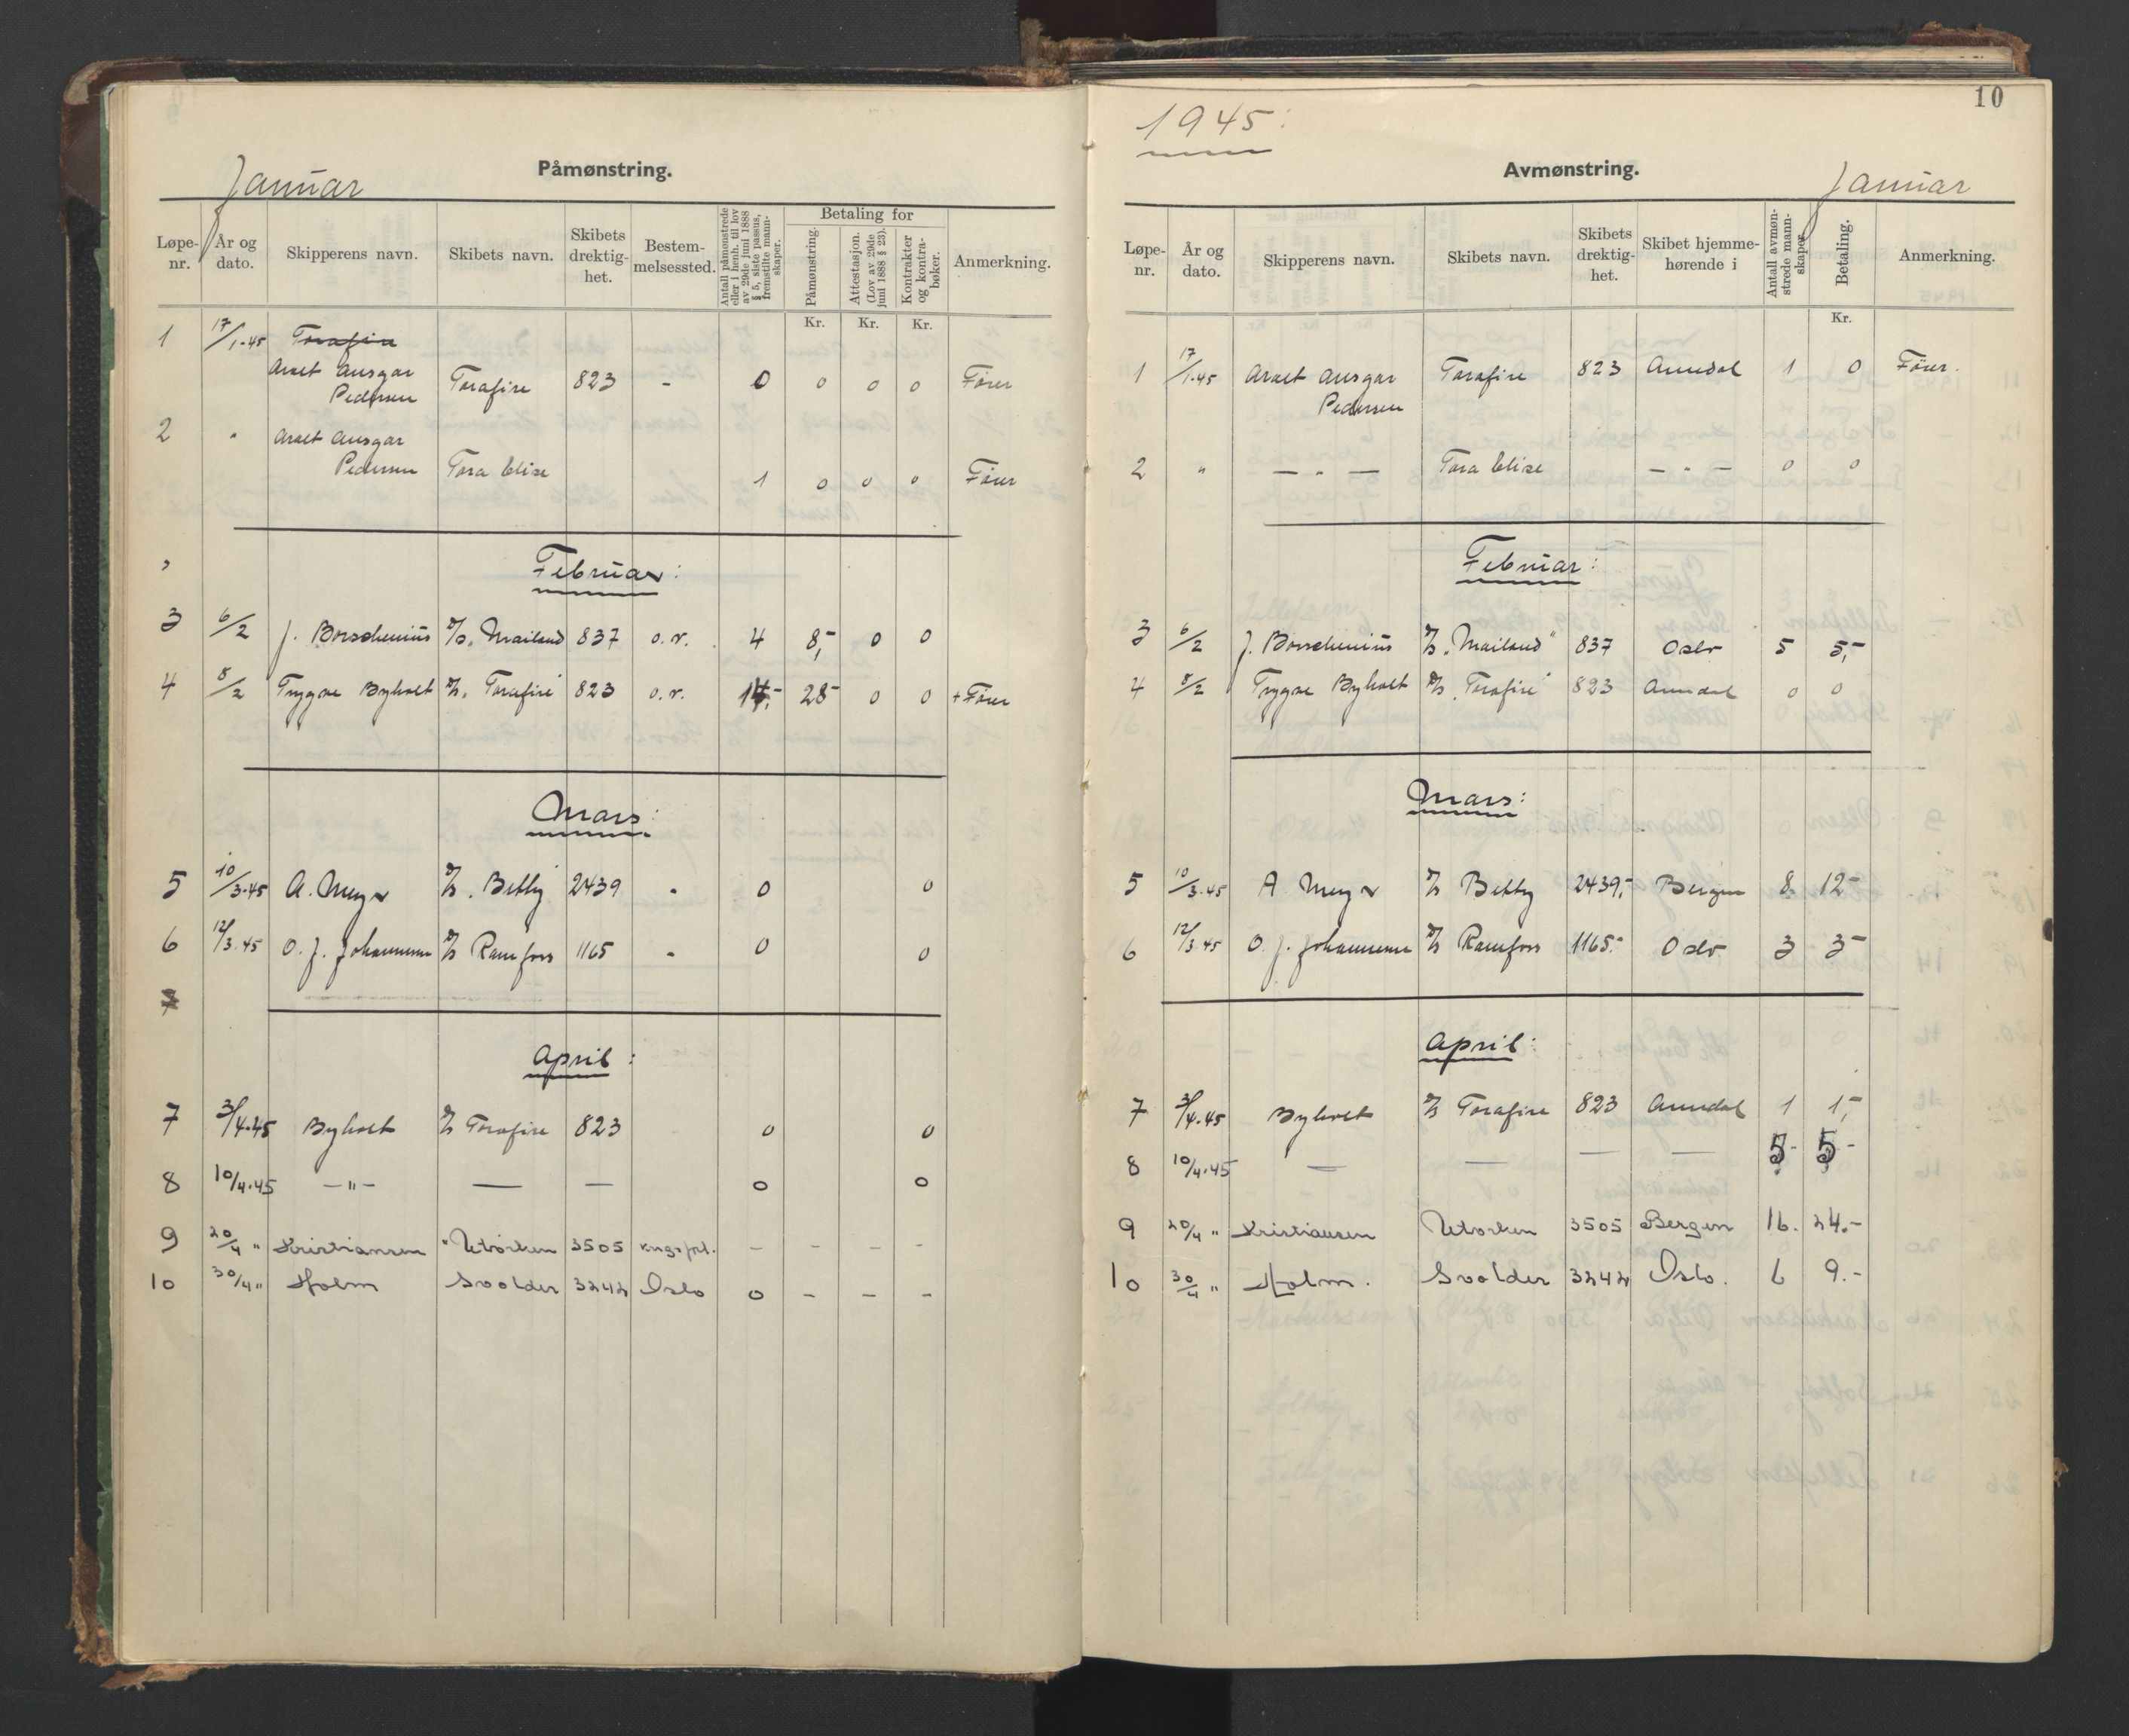 Januar
Påmønstring.
Løpe-nr. År og dato. Skipperens navn. Skibets navn. Skibets drektig-het. Bestem-melsessted. Antall påmønstrede eller i henh. til lov av 29de juni 1888 § 5, siste passus, fremstilte mann-skaper. Betaling for Påmønstring. Attestasjon. (Lov av 29de juni 1888 § 23). Kontrakter og kontra-bøker. Anmerkning.
Kr. Kr. Kr.
1 17/1-45 Torafire
Ansgar Pedersen Torafire 823 - 0 0 0 0 Fører
2 " Ansgar
Pedersen Tora Elise 1 0 0 0 Fører
Februar:
3 6/2 J. Borschenius D/S. Mailand 837 o.r. 4 8,- 0 0
4 8/2 Trygve Byholt D/S. Torafire 823 o.r. 14,- 28- 0 0 + Fører
Mars:
5 10/3-45 A. Meyer D/S. Betty 2439 - 0 0
6 12/3.45 O. J. Johannesen D/S Ramfoss 1165 - 0 0
7
April:
7 3/4.45 Byholt D/S Torafire 823 0 0
8 10/4.45 —"— — — 0 0
9 20/4 " Kristiansen " Utviken 3505 - - - -
10 30/4 " Holm Svolder 3242 Oslo 0 - - -
10
1945:
Avmønstring.
Januar
Løpe-nr. År og dato. Skipperens navn. Skibets navn. Skibets drektig-het. Skibet hjemme-hørende i Antall avmøn-strede mann-skaper. Betaling. Anmerkning.
Kr.
1 17/1.45 Ansgar Torafire 823 Arendal 1 0 Fører.
Pedersen
2 " — " — Tora Elise — " — 0 0
Februar:
3 6/2 J. Borschenius D/S. "Mailand" 837 Oslo 5 5,-
4 8/2 Trygve Byholt D/S. Torafire 823 Arendal 0 0
Mars:
5 10/3.45 A Meyer D/S Betty 2439,- Bergen 8 12-
6 12/3.45 O. J. Johannesen D/S Ramfoss 1165- Oslo 3 3-
April:
7 3/4.45 Byholt D/S Torafire 823 Arendal 1 1,-
8 10/4.45 — — — — 5- 5-
9 20/4 " Kristiansen Utviken 3505 Bergen 16. 24.-
10 30/4 " Holm. Svolder 3242 Oslo. 6 9.-